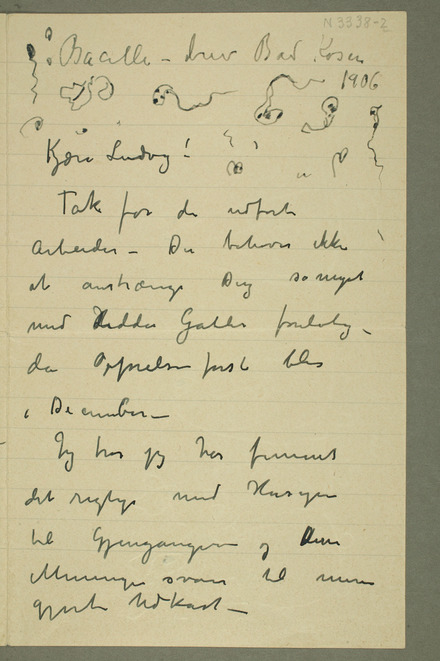 N 3338-2
Bacille – brev Bad Kösen
1906
Kjære Ludvig!
Tak for de udførte
Arbeider – Du behøver ikke
at anstrænge Dig så meget
med Hedda Gabler foreløbig –
da Opførelsen først blir
i December –
Jeg tror jeg har funnet
det rigtige med Husejer
til Gjengangere og Dine
Meninger svarer til mine
gjorte Udkast –